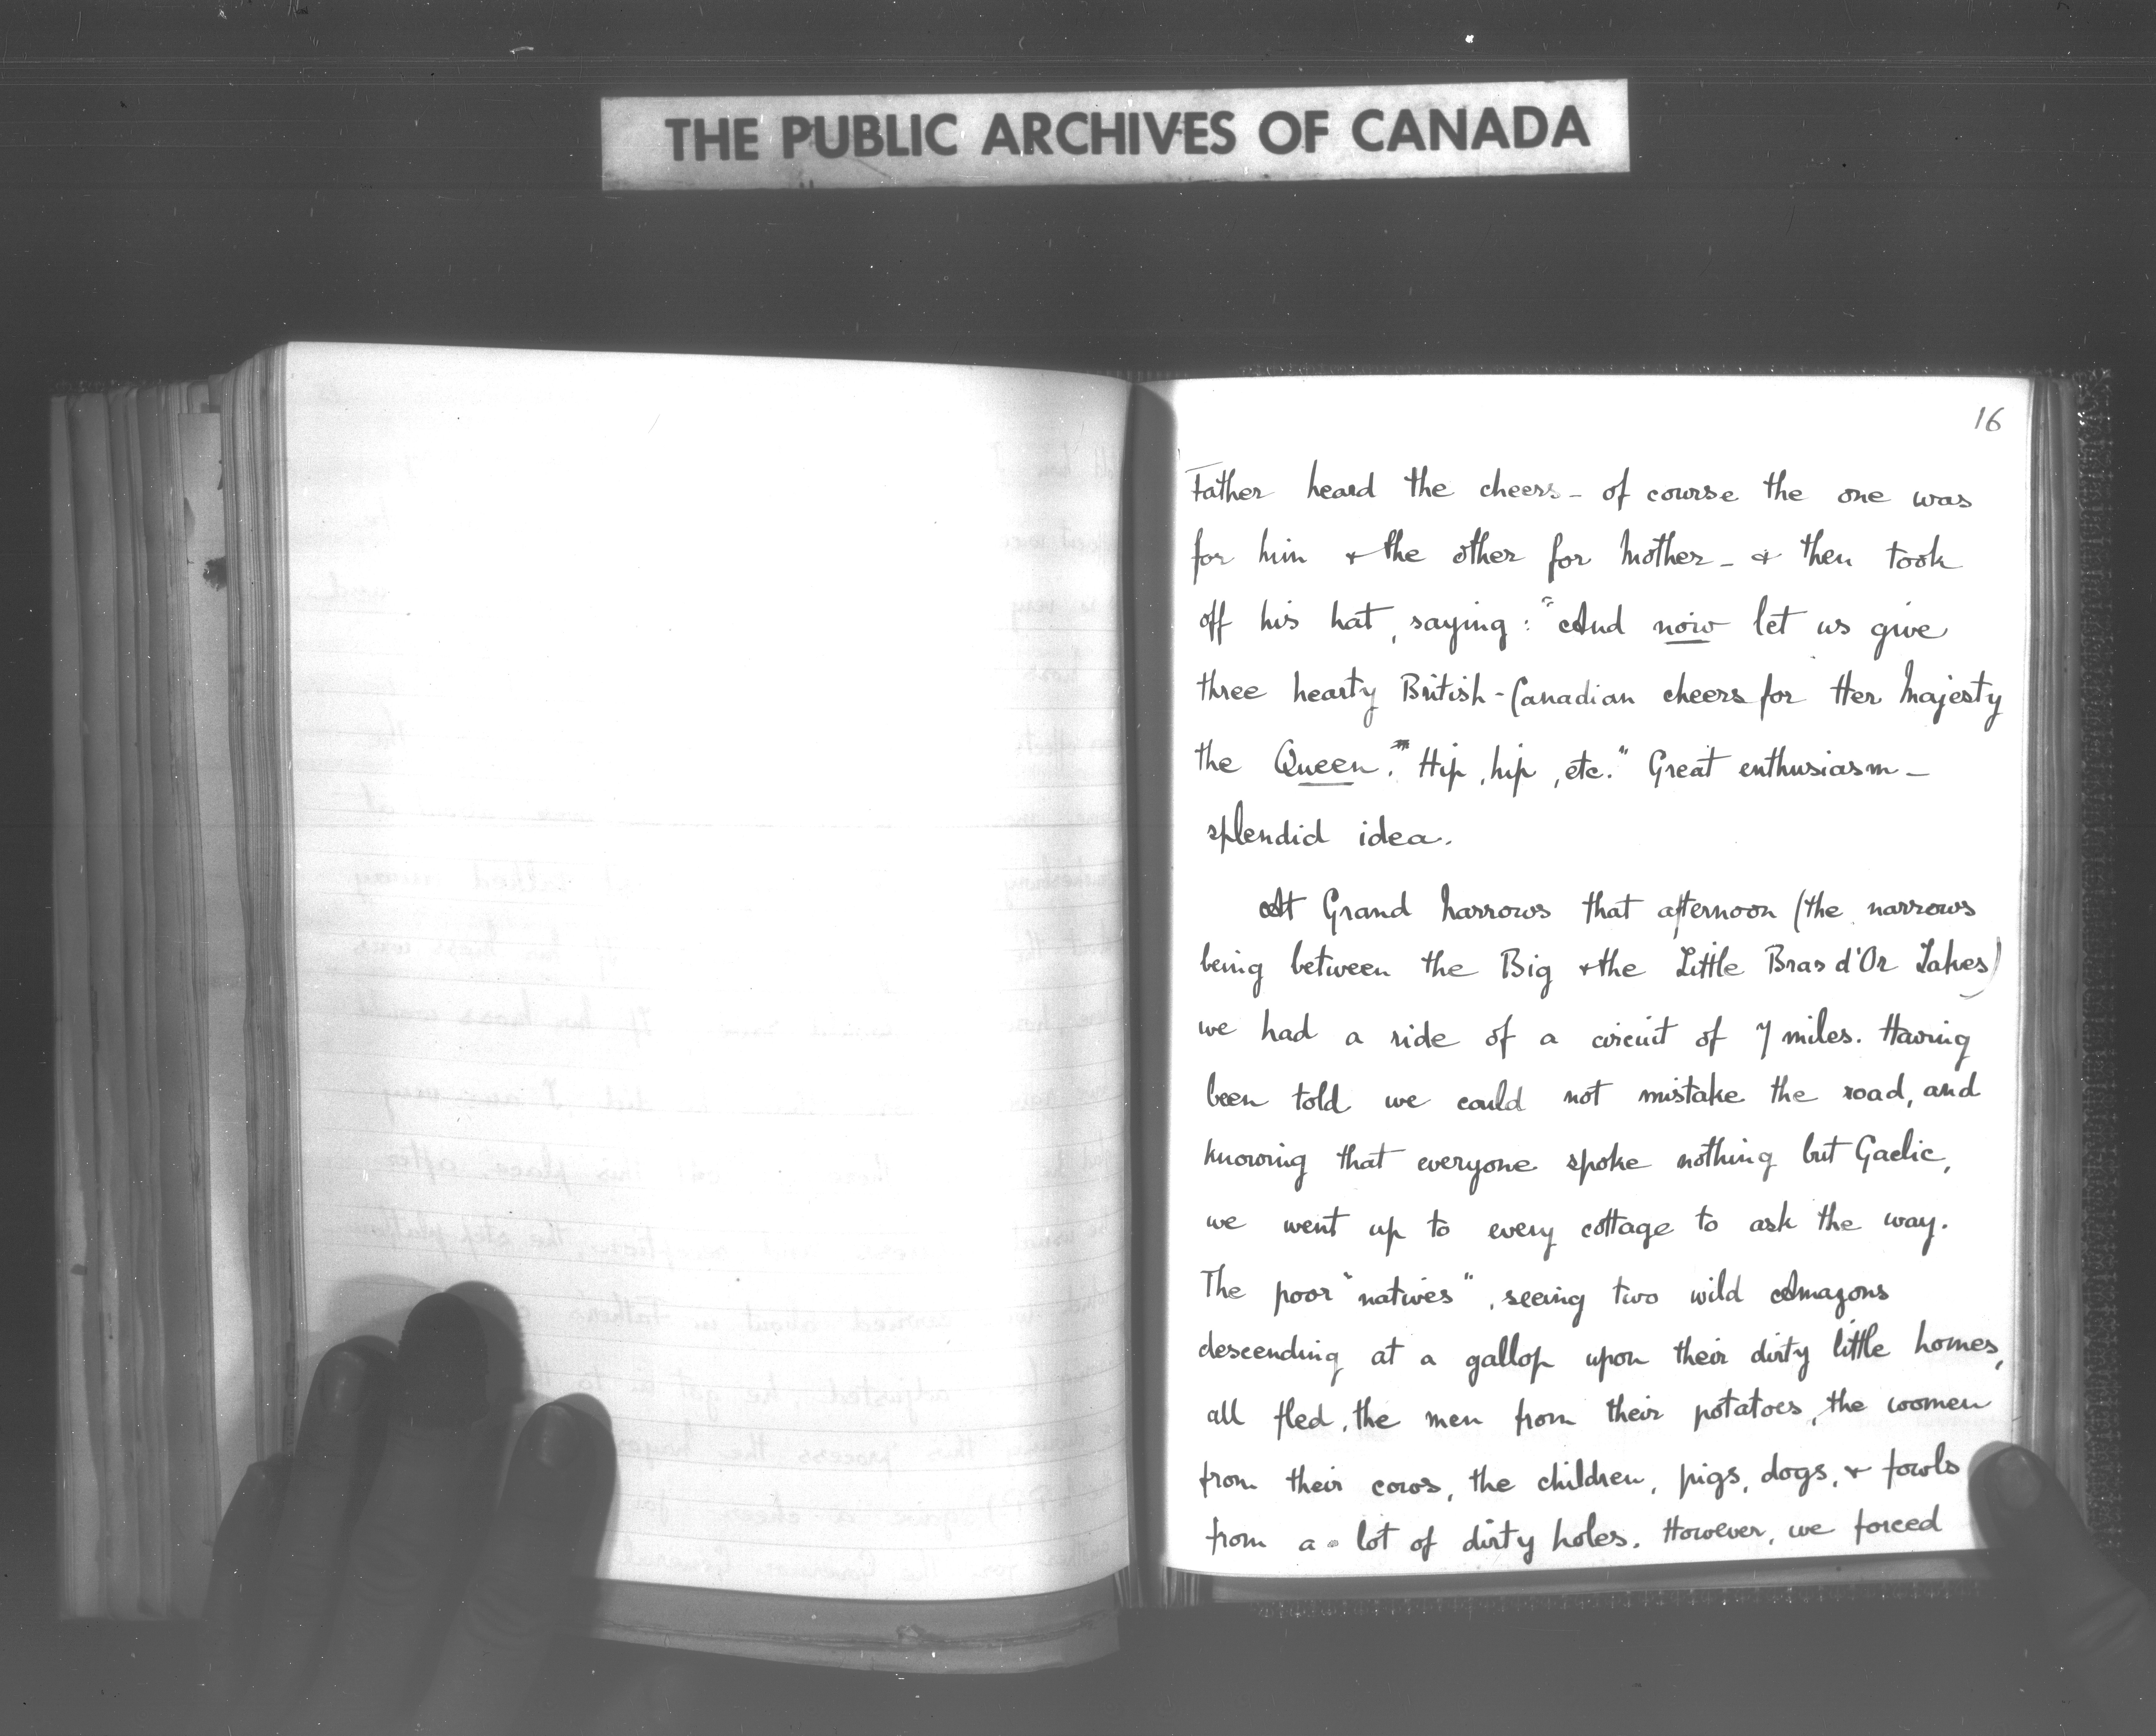 THE PUBLIC ARCHIVES OF CANADA
16
Father heard the cheers - of course the one was
for him & the other for Mother - & then took
off his hat, saying: "And now let us give
three hearty British-Canadian cheers for Her Majesty
the Queen." "Hip, hip, etc." Great enthusiasm -
splendid idea.
At Grand Narrows that afternoon (the narrows
being between the Big & the Little Bras d'Or Lakes)
we had a ride of a circuit of 7 miles. Having
been told we could not mistake the road, and
knowing that everyone spoke nothing but Gaelic,
we went up to every cottage to ask the way.
The poor "natives", seeing two wild Amazons
descending at a gallop upon their dirty little homes,
all fled, the men from their potatoes, the women
from their cows, the children, pigs, dogs, & fowls
from a lot of dirty holes. However, we forced